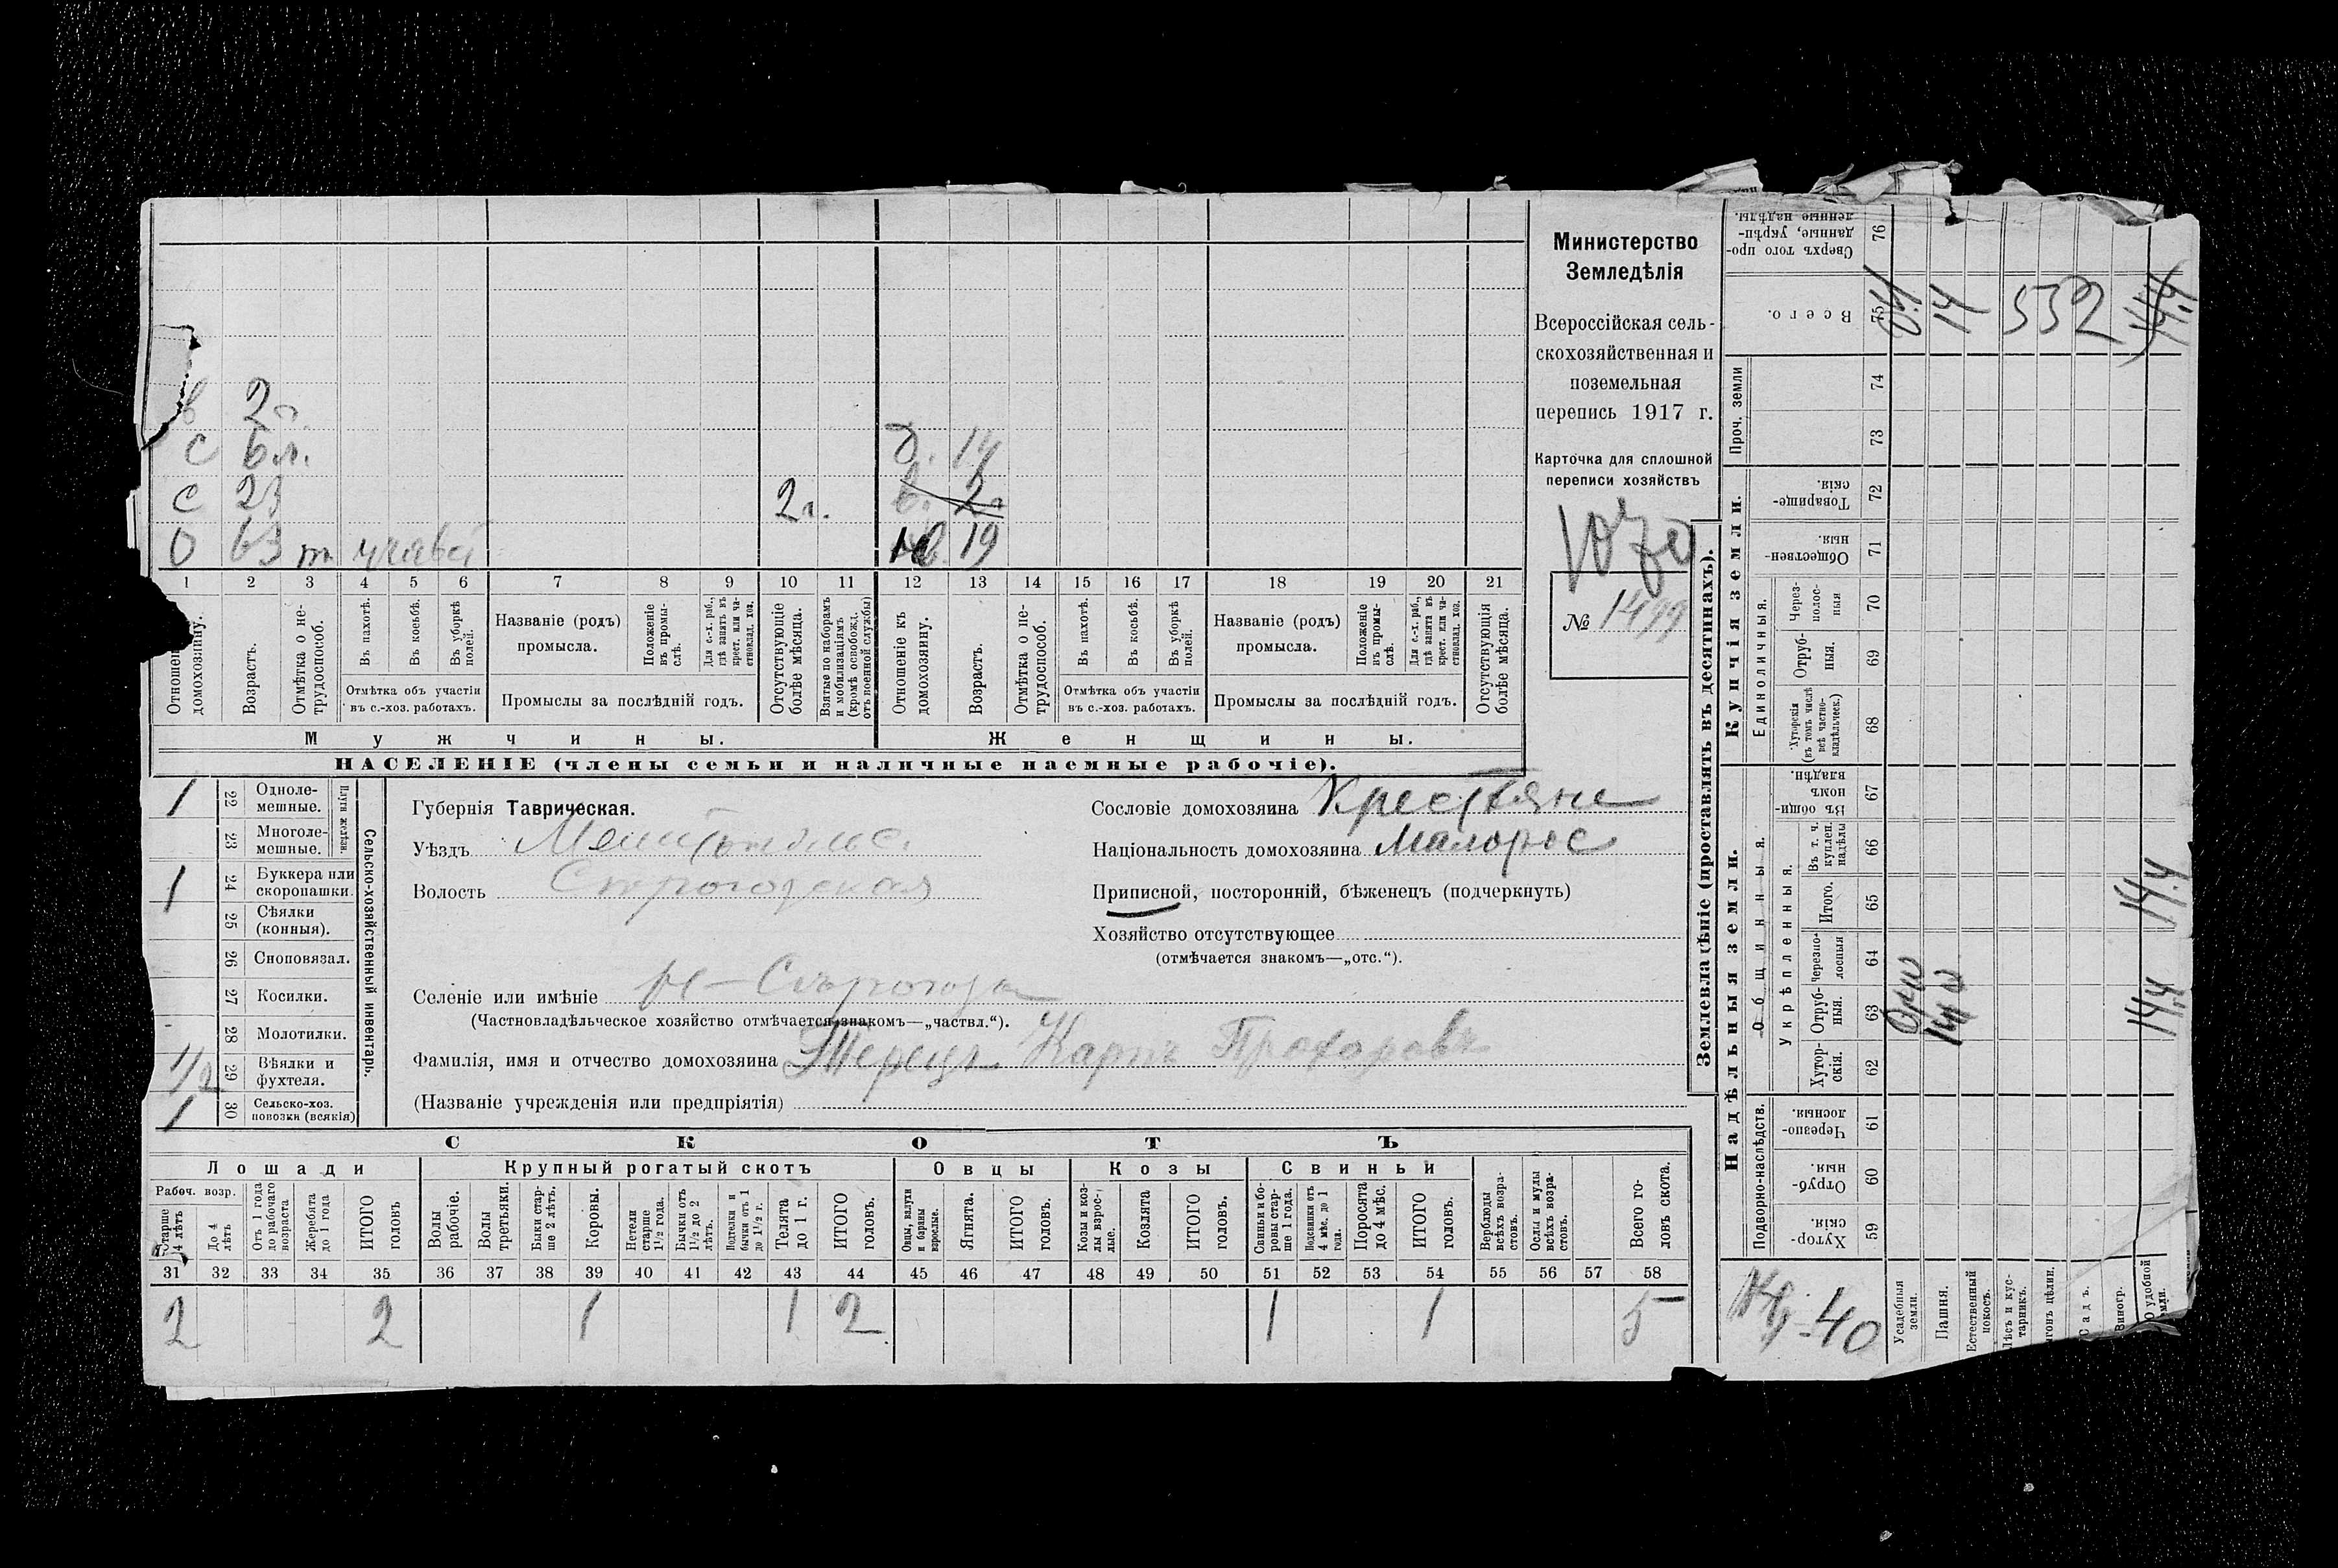 в 2 г.
с 6 л. д. 14
с 23 2 г. в. 2 г.
О 63 19
1 2 3 4 5 6 7 8 9 10 11 12 13 14 15 16 17 18 19 20 21
Отношен домохозяину.
Возрастъ.
Отмѣтка о не-
трудоспособ.
Въ пахотѣ.
Въ косьбѣ.
Въ уборкѣ
полей.
Отмѣтка объ участіи
въ с.-хоз. работахъ.
Названіе (родъ)
промысла.
Положеніе
въ промы-
слѣ.
Для с.-х. раб.,
гдѣ занятъ въ
крест. или ча-
стновлад. хоз.
Промыслы за послѣдній годъ.
Отсутствующіе
болѣе мѣсяца.
Взятые по наборамъ
и мобилизаціямъ
(кромѣ освобожд.
отъ военной службы)
Отношеніе къ
домохозяину.
Возрастъ.
Отмѣтка о не-
трудоспособ.
Въ пахотѣ.
Въ косьбѣ.
Въ уборкѣ
полей.
Отмѣтка объ участіи
въ с.-хоз. работахъ.
Названіе (родъ)
промысла.
Положеніе
въ промы-
слѣ.
Для с.-х. раб.,
гдѣ занята въ
крест. или ча-
стновлад. хоз.
Промыслы за послѣдній годъ.
Отсутствующія
болѣе мѣсяца.
Мужчины.
Женщины.
НАСЕЛЕНІЕ (члены семьи и наличные наемные рабочіе).
Министерство
Земледѣлія
Всероссійская сель-
скохозяйственная и
поземельная
перепись 1917 г.
Карточка для сплошной
переписи хозяйствъ
№ 1499
1 22 Одноле-
мешные.
23 Многоле-
мешные.
Плуги желѣзн.
1 24 Буккера или
скоропашки.
25 Сѣялки
(конныя).
26 Сноповязал.
27 Косилки.
28 Молотилки.
1/2 29 Вѣялки и
фухтеля.
1 30 Сельско-хоз.
повозки (всякія)
Сельско-хозяйственный инвентарь.
Губернія Таврическая.
Уѣздъ
Волость
Селеніе или имѣніе
(Частновладѣльческое хозяйство отмѣчается знакомъ—„частвл.“).
Фамилія, имя и отчество домохозяина Карпъ
(Названіе учрежденія или предпріятія)
Сословіе домохозяина Крестьяне
Національность домохозяина Малорос
Приписной, посторонній, бѣженецъ (подчеркнуть)
Хозяйство отсутствующее
(отмѣчается знакомъ—„отс.“).
СКОТЪ
Лошади
Крупный рогатый скотъ
Овцы
Козы
Свиньи
Рабоч. возр.
Старше
4 лѣтъ
До 4
лѣтъ
Отъ 1 года
до рабочаго
возраста
Жеребята
до 1 года
ИТОГО
головъ
Волы
рабочіе.
Волы
третьяки.
Быки стар-
ше 2 лѣтъ.
Коровы.
Нетели
старше
1½ года.
Бычки отъ
1½ до 2
лѣтъ.
Подтелки и
бычки отъ 1
до 1½ г.
Телята
до 1 г.
ИТОГО
головъ.
Овцы, валухи
и бараны
взрослые.
Ягнята.
ИТОГО
головъ.
Козы и коз-
лы взрос-
лые.
Козлята
ИТОГО
головъ.
Свиньи и бо-
ровы стар-
ше 1 года.
Подсвинки отъ
4 мѣс. до 1
года.
Поросята
до 4 мѣс.
ИТОГО
головъ.
Верблюды
всѣхъ возра-
стовъ.
Ослы и мулы
всѣхъ возра-
стовъ.
Всего го-
ловъ скота.
31 32 33 34 35 36 37 38 39 40 41 42 43 44 45 46 47 48 49 50 51 52 53 54 55 56 57 58
2 2 1 1 2 1 1 5
Землевладѣніе (проставлять въ десятинахъ).
Купчія земли.
Надѣльныя земли.
Сверхъ того про-
данные, укрѣп-
ленные надѣлы.
76
Всего.
75
14 532
Проч. земли
74
73
Товарище-
скія.
72
Обществен-
ныя.
71
Единоличныя.
Через-
полос-
ныя
70
Отруб-
ныя.
69
Хуторскія
(въ томъ числѣ
всѣ частно-
владѣльческ.)
68
Общинныя.
Въ общи-
номъ
владѣн.
67
Укрѣпленныя.
Въ т. ч.
куплен.
надѣлы
66
Итого.
65
14,4
Черезпо-
лосныя
64
Отруб-
ныя.
63
14,4
Хутор-
скія.
62
Подворно-наслѣдств.
Черезпо-
лосныя.
61
Отруб-
ныя.
60
Хутор-
скія.
59
40
Усадебныя
земли.
Пашня.
Естественный
покосъ.
Лѣсъ и кус-
тарникъ.
Садъ.
Виногр.
удобной